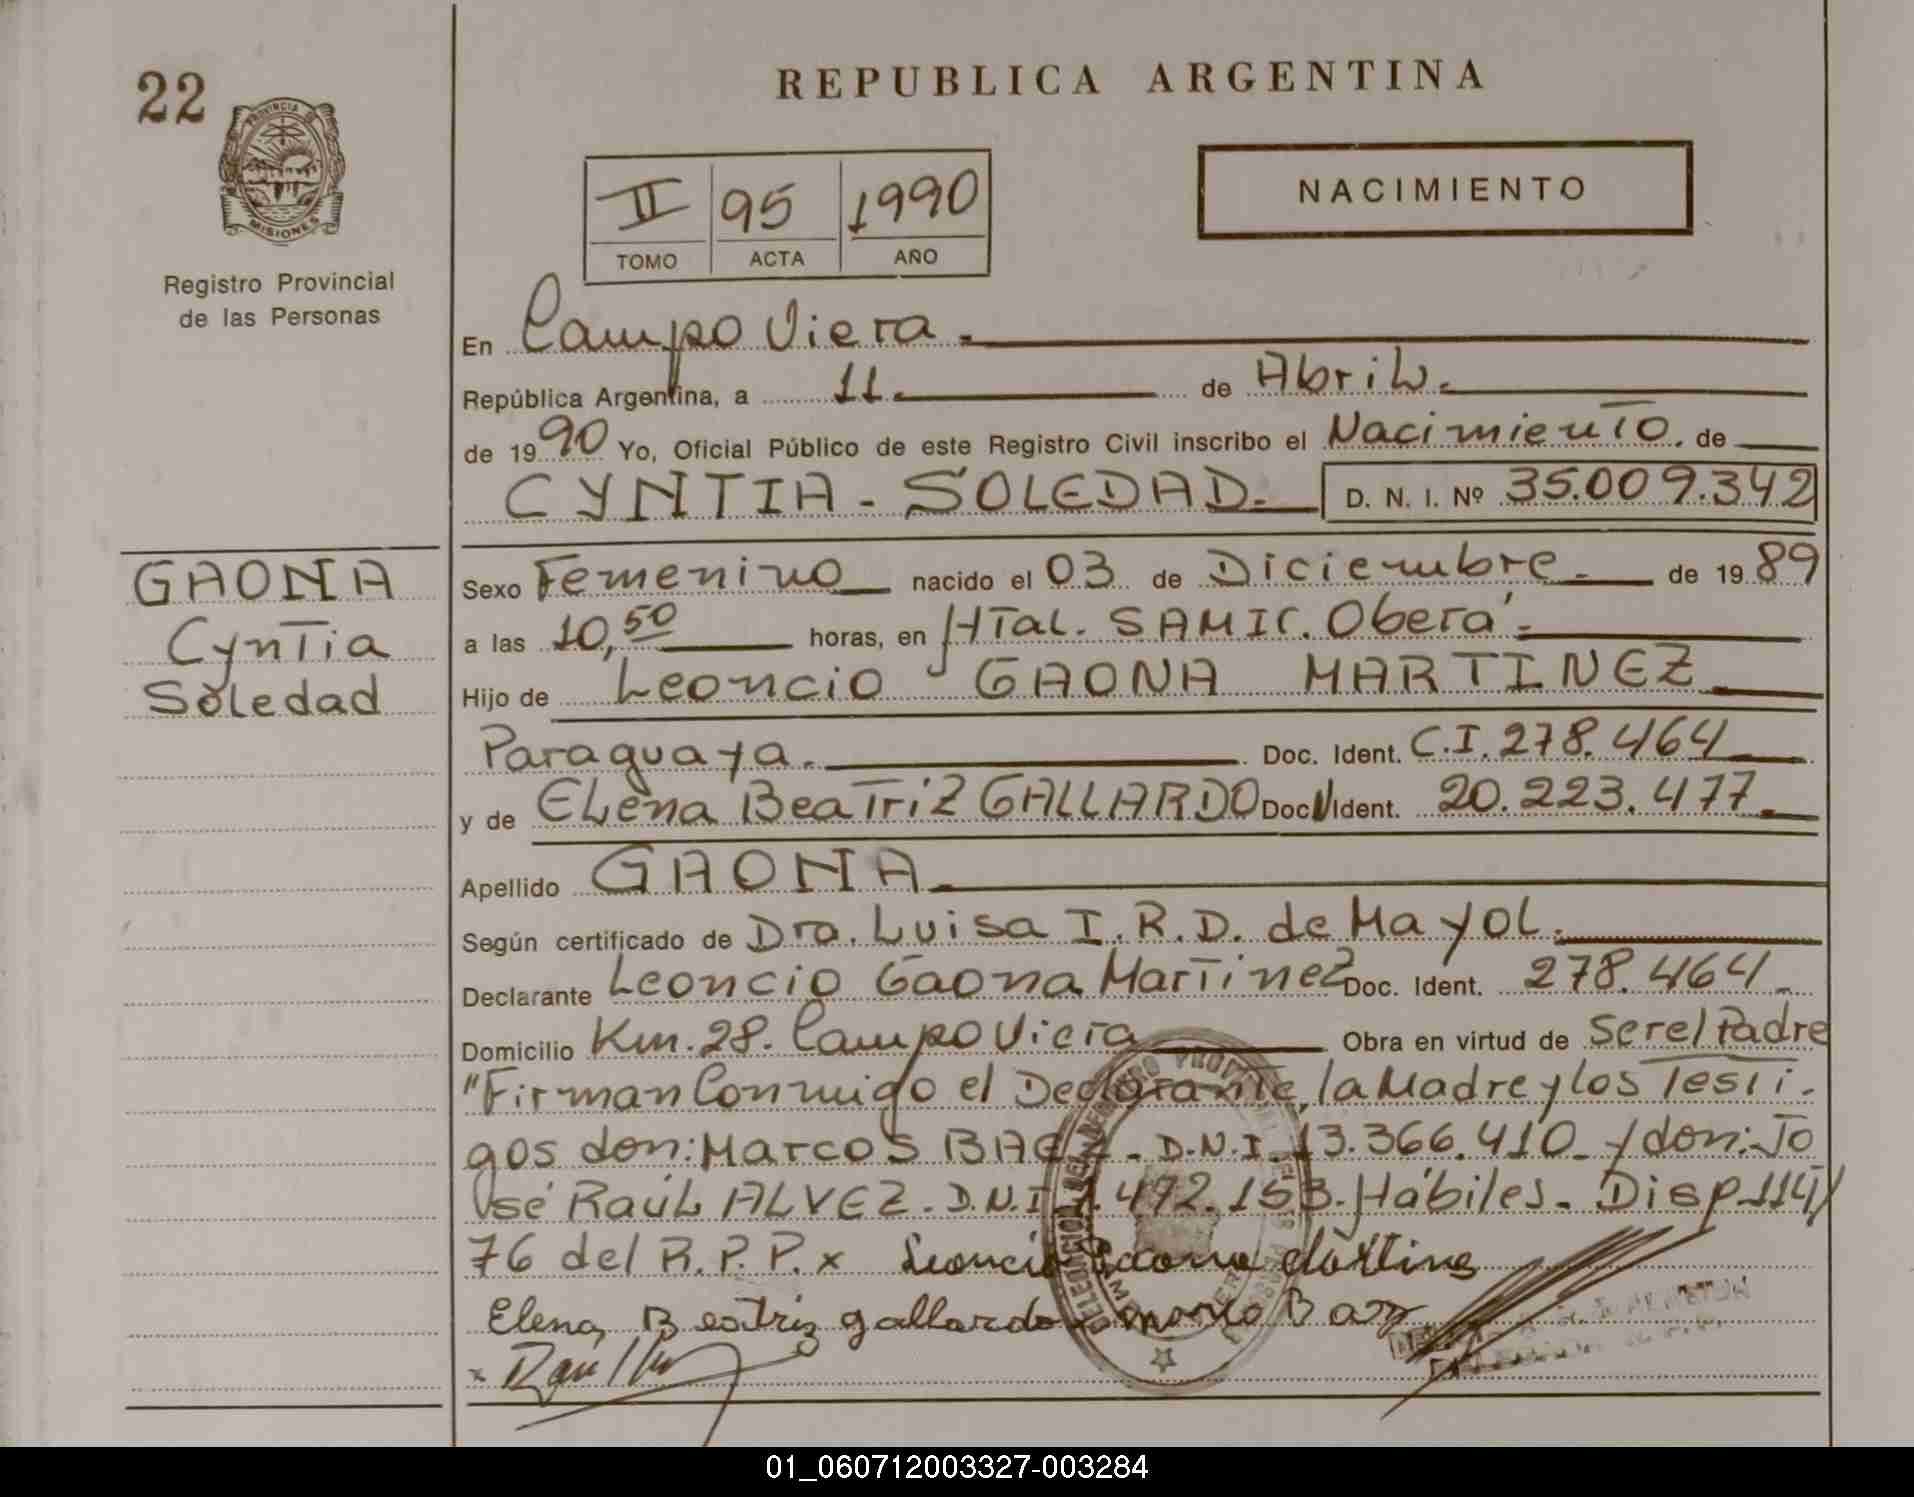 22
PROVINCIA DE
MISIONES
Registro Provincial
de las Personas
GAONA
Cyntia
Soledad
REPUBLICA ARGENTINA
II 95 1990
TOMO ACTA AÑO
NACIMIENTO
En Campo Viera.
República Argentina, a 11. de Abril.
de 19 90 Yo, Oficial Público de este Registro Civil inscribo el Nacimiento. de
CYNTIA - SOLEDAD. D. N. I. Nº 35.009.342
Sexo Femenino nacido el 03 de Diciembre. de 19 89
a las 10,50 horas, en HTal. SAMIC. Oberá.
Hijo de Leoncio GAONA MARTINEZ
Paraguaya. Doc. Ident. C.I. 278.464
y de Elena Beatriz GALLARDO Doc. Ident. 20.223.477.
Apellido GAONA.
Según certificado de Dra. Luisa I. R. D. de Mayol.
Declarante Leoncio Gaona Martinez Doc. Ident. 278.464.
Domicilio Km. 28. Campo Viera Obra en virtud de Ser el Padre
"Firman Conmigo el Declarante, la Madre y los Testi-
gos don: Marcos BAEZ - D.N.I. 13.366.410 y don: Jo
sé Raúl ALVEZ. D.N.I. 472.153. Hábiles. Disp. 114/
76 del R.P.P. x Leoncio Gaona Martine
Elena Beatriz gallardo x marco Baez
x Raul
01_060712003327-003284